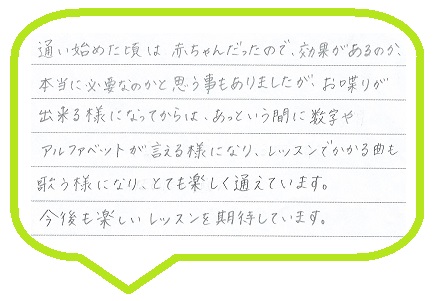 通い始めた頃は赤ちゃんだったので、効果があるのか、
本当に必要なのかと思う事もありましたが、お喋りが
出来る様になってからは、あっという間に数字や
アルファベットが言える様になり、レッスンでかかる曲も
歌う様になり、とても楽しく通えています。
今後も楽しいレッスンを期待しています。